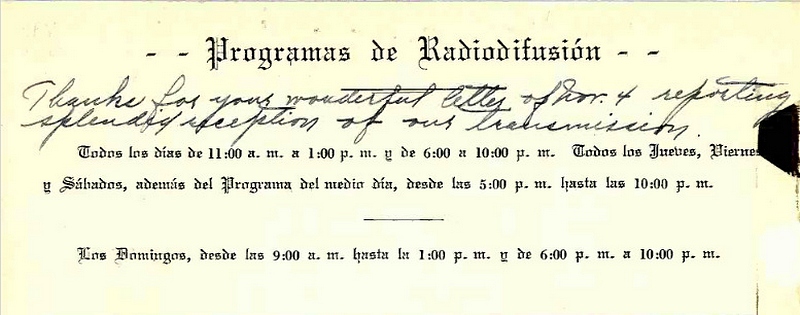 - - Programas de Radiodifusión - -
Thanks for your wonderful letter of Nov. 4 reporting
splendid reception of our transmission.
Todos los días de 11:00 a. m. a 1:00 p. m. y de 6:00 a 10:00 p. m. Todos los Jueves, Viernes
y Sábados, además del Programa del medio día, desde las 5:00 p. m. hasta las 10:00 p. m.
Los Domingos, desde las 9:00 a. m. hasta la 1:00 p. m. y de 6:00 p. m. a 10:00 p. m.